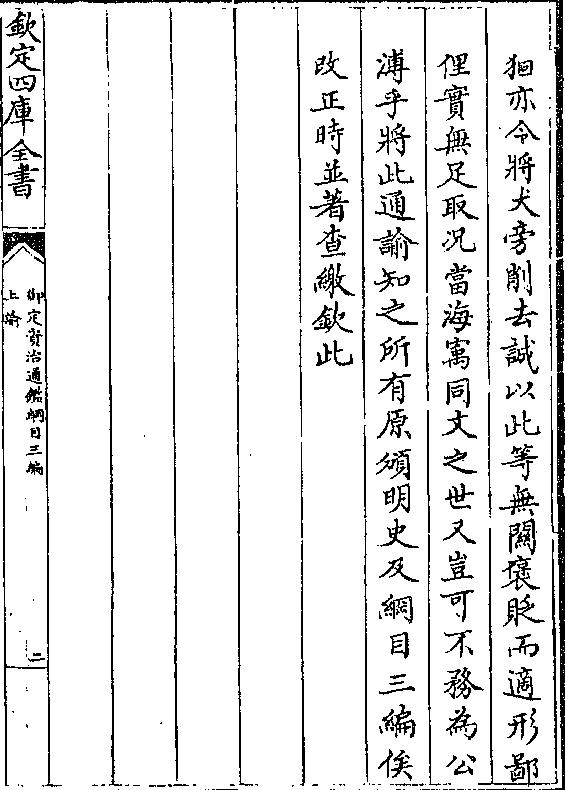 狪亦令將犬旁削去誠以此等無關襃貶而適形鄙
俚實無足取况當海寓同文之世又豈可不務為公
溥乎將此通諭知之所有原頒明史及綱目三編俟
改正時並著查繳欽此
欽定四庫全書
御定資治通鑑綱目三編
上諭
二